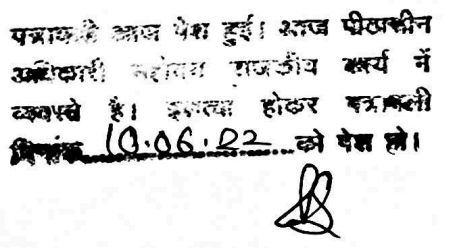 पत्रावली आज पेश हुई। आज पीठासीन
अधिकारी महोदय राजकीय कार्य में
व्यस्त है। होकर पत्रावली
दिनांक 10.06.22 को पेश हो।